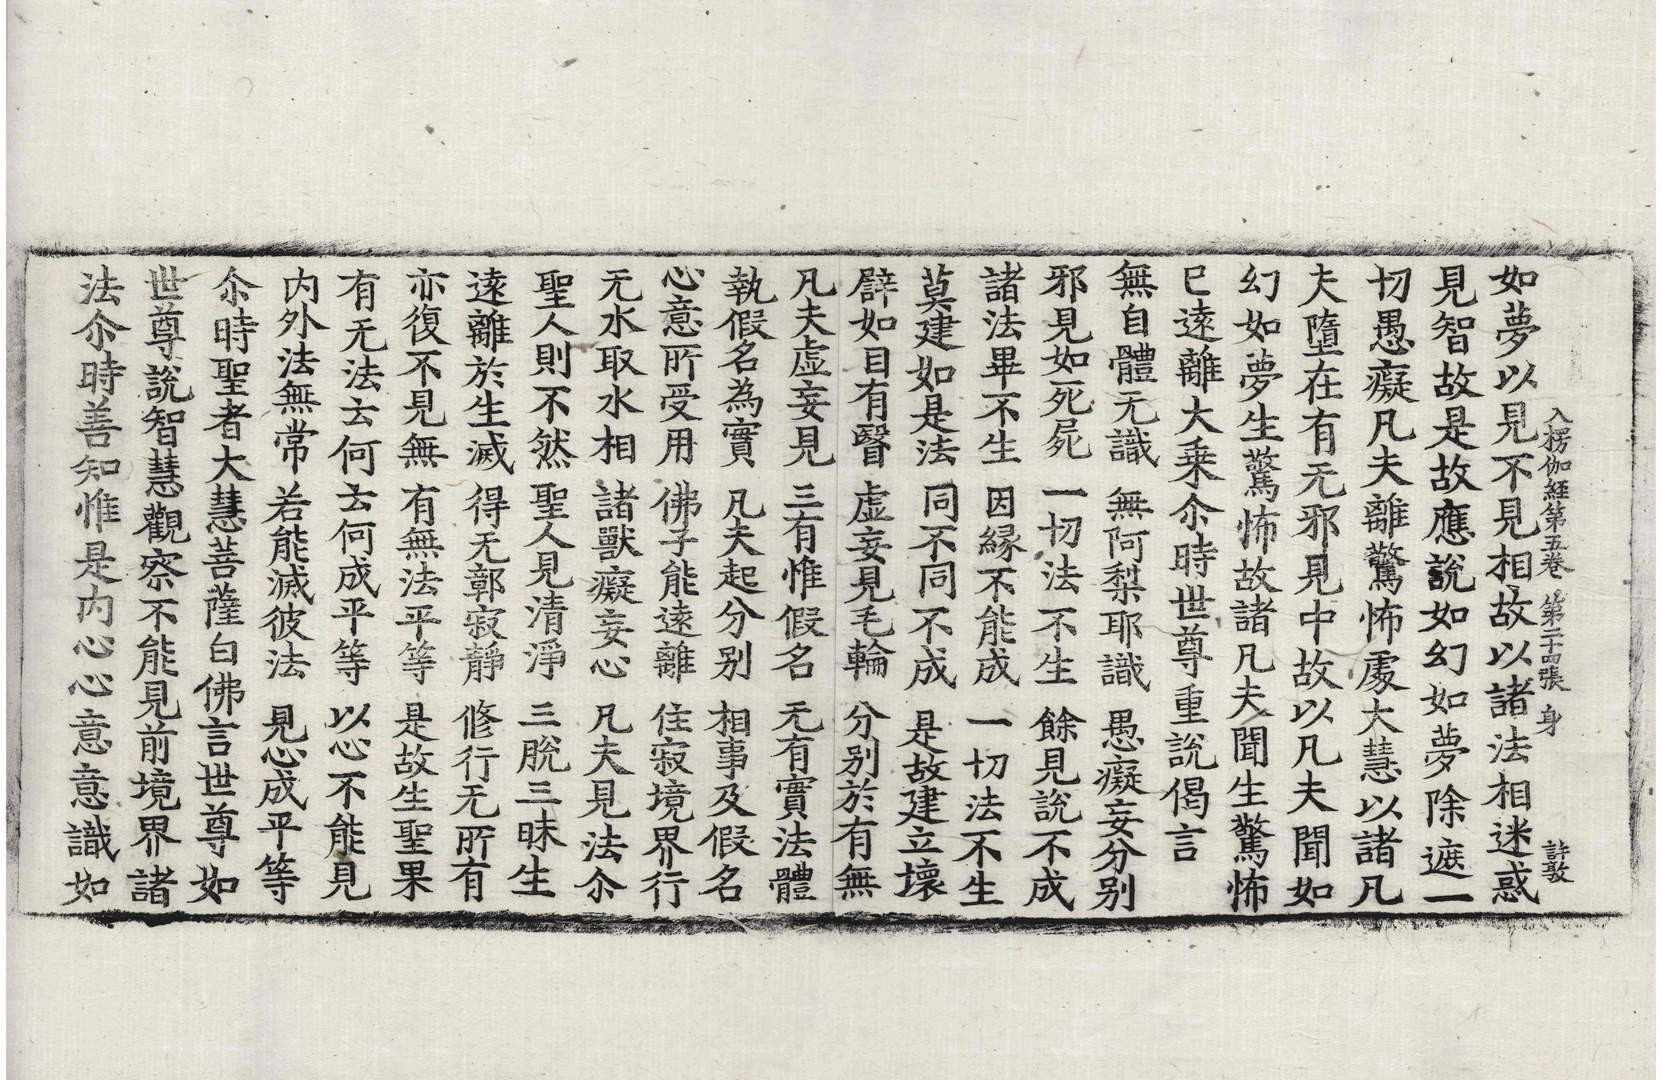 入楞伽經第五卷 第二十四張 身 許敦
如夢以見不見相故以諸法相迷惑
見智故是故應說如幻如夢除遮一
切愚癡凡夫離驚怖處大慧以諸凡
夫墮在有无邪見中故以凡夫聞如
幻如夢生驚怖故諸凡夫聞生驚怖
已遠離大乗尒時世尊重說偈言
無自體无識 無阿梨耶識 愚癡妄分別
邪見如死屍 一切法不生 餘見說不成
諸法畢不生 因縁不能成 一切法不生
莫建如是法 同不同不成 是故建立壞
譬如目有翳 虛妄見毛輪 分別於有無
凡夫虛妄見 三有惟假名 无有實法體
執假名為實 凡夫起分別 相事及假名
心意所受用 佛子能遠離 住寂境界行
无水取水相 諸獸癡妄心 凡夫見法尒
聖人則不然 聖人見清淨 三脫三昧生
遠離於生滅 得无鄣寂靜 修行无所有
亦復不見無 有無法平等 是故生聖果
有无法云何 云何成平等 以心不能見
内外法無常 若能滅彼法 見心成平等
尒時聖者大慧菩薩白佛言世尊如
世尊說智慧觀察不能見前境界諸
法尒時善知惟是内心心意意識如